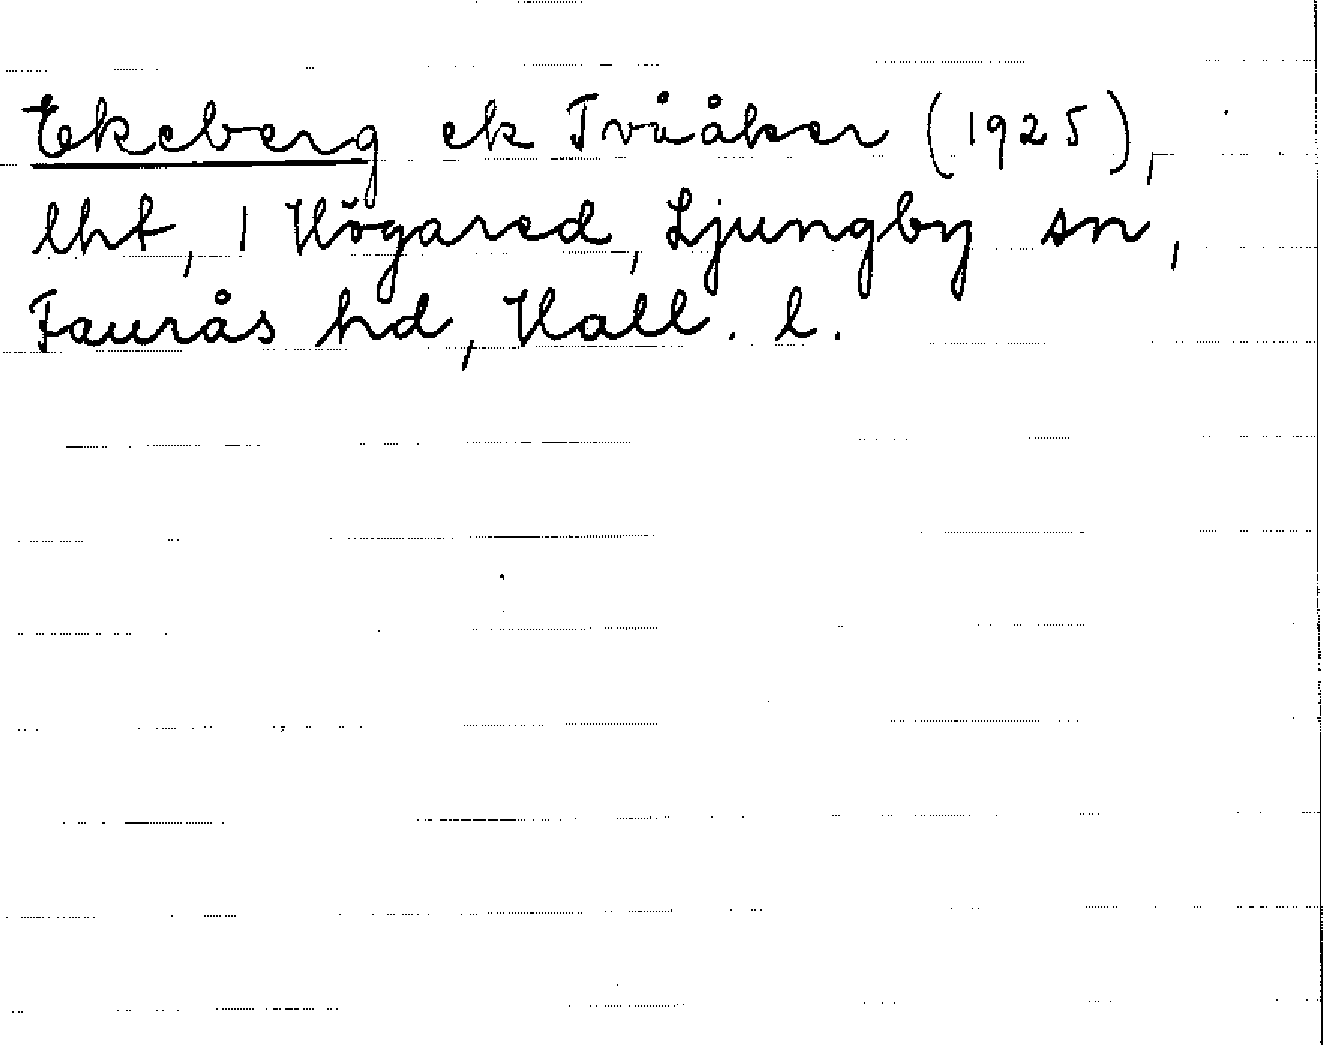 Ekeberg ek Tvååker (1925),
lht, 1 Högared, Ljungby sn,
Faurås hd, Hall. l.